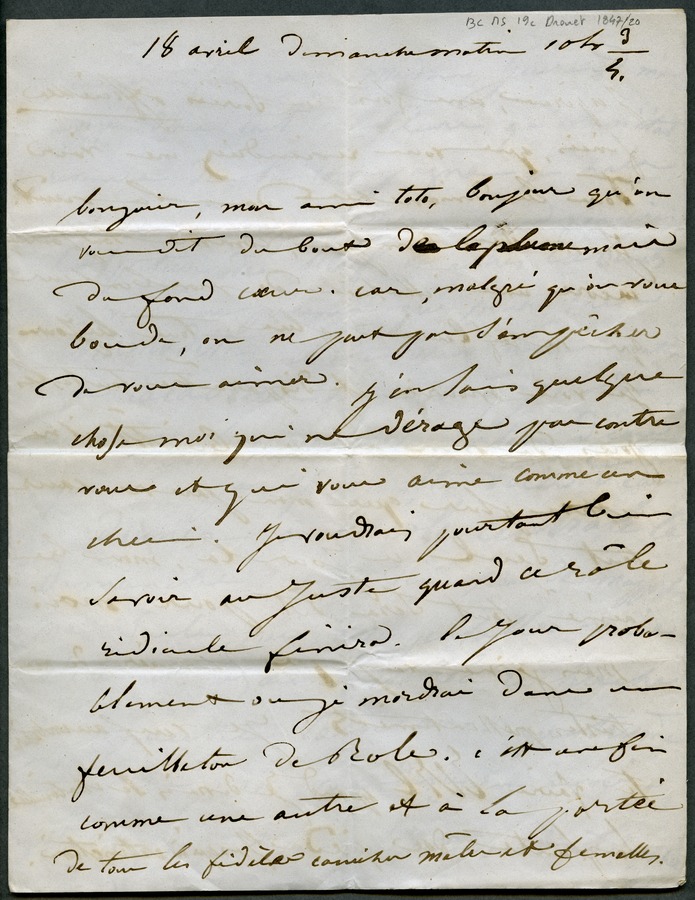 BC MS 19c Drouet 1847/20
18 avril dimanche matin 10h 3/4.
bonjour, mon ami toto, bonjour qu'on
vous dit du bout de la plume mais
du fond cœur. car, malgré qu'on vous
boude, on ne peut pas s'empêcher
de vous aimer. j'en sais quelque
chose moi qui ne dérage pas contre
vous et qui vous aime comme un
chien. Je voudrais pourtant bien
savoir au juste quand ce rôle
ridicule finira. le jour proba-
blement où je mordrai dans un
feuilleton de Role. c'est une fin
comme une autre et à la portée
de tous les fidèles caniches mâles et femelles.